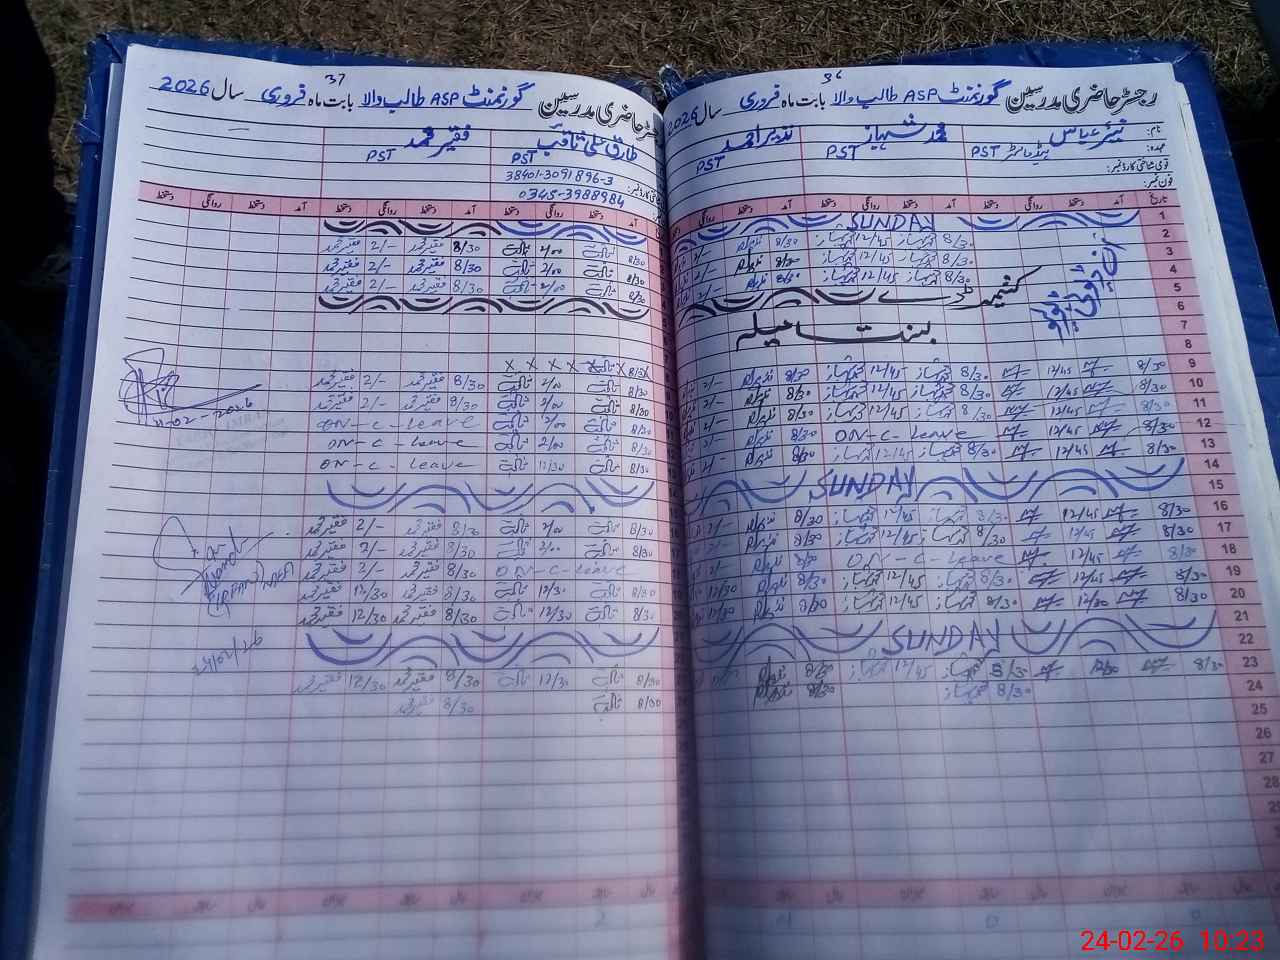 36
رجسٹر حاضری مدرسین گورنمنٹ ASP طالب والا بابت ماہ فروری سال 2026
نام: نیئر عباس محمد شہباز نذیر احمد
عہدہ: ہیڈ ماسٹر PST PST PST
قومی شناختی کارڈ نمبر:
فون نمبر:
تاریخ آمد دستخط روانگی دستخط آمد دستخط روانگی دستخط آمد دستخط روانگی
1 SUNDAY
2 8/30 شہباز 12/45 شہباز 8/30 نذیر 2/-
3 8/30 شہباز 12/45 شہباز 8/30 نذیر 2/-
4 8/30 شہباز 12/45 شہباز 8/30 نذیر 2/-
آن ڈیوٹی
5 کشمیر ڈے
6
7 بسنت میلہ
8
9 8/30 12/45 8/30 شہباز 12/45 شہباز 8/30 نذیر 2/-
10 8/30 12/45 8/30 شہباز 12/45 شہباز 8/30 نذیر 2/-
11 8/30 12/45 8/30 شہباز 12/45 شہباز 8/30 نذیر 2/-
12 8/30 12/45 ON-C-Leave 8/30 نذیر 2/-
13 8/30 12/45 8/30 شہباز 12/45 شہباز 8/30 نذیر
14
15 SUNDAY
16 8/30 12/45 8/30 شہباز 12/45 شہباز 8/30 نذیر 2/-
17 8/30 12/45 8/30 شہباز 12/45 شہباز 8/30 نذیر 2/-
18 8/30 12/45 ON-C-Leave 8/30 نذیر 2/-
19 8/30 12/45 8/30 شہباز 12/45 شہباز 8/30 نذیر 12/30
20 8/30 12/30 8/30 شہباز 12/45 شہباز 8/30 نذیر 12/30
21
22 SUNDAY
23 8/30 12/30 8/30 شہباز 12/45 شہباز 8/30 نذیر
24 8/30 شہباز 8/30 نذیر
25
26
27
28
37
رجسٹر حاضری مدرسین گورنمنٹ ASP طالب والا بابت ماہ فروری سال 2026
طارق علی ثاقب فقیر محمد
PST PST
شناختی کارڈ نمبر: 38401-3091896-3
0345-3988984
آمد دستخط روانگی دستخط آمد دستخط روانگی دستخط آمد دستخط روانگی دستخط
8/30 ثاقب 2/00 ثاقب 8/30 فقیر محمد 2/- فقیر محمد
8/30 ثاقب 2/00 ثاقب 8/30 فقیر محمد 2/- فقیر محمد
8/30 ثاقب 2/00 ثاقب 8/30 فقیر محمد 2/- فقیر محمد
8/30 ثاقب X X X X X
8/30 ثاقب 2/00 ثاقب 8/30 فقیر محمد 2/- فقیر محمد
8/30 ثاقب 2/00 ثاقب 8/30 فقیر محمد 2/- فقیر محمد
8/30 ثاقب 2/00 ثاقب ON-C-Leave
8/30 ثاقب 2/00 ثاقب ON-C-Leave
8/30 ثاقب 12/30 ثاقب ON-C-Leave
11-02-2026
8/30 ثاقب 2/00 ثاقب 8/30 فقیر محمد 2/- فقیر محمد
8/30 ثاقب 2/00 ثاقب 8/30 فقیر محمد 2/- فقیر محمد
ON-C-Leave 8/30 فقیر محمد 2/- فقیر محمد
8/30 ثاقب 12/30 ثاقب 8/30 فقیر محمد 12/30 فقیر محمد
8/30 ثاقب 12/30 ثاقب 8/30 فقیر محمد 12/30 فقیر محمد
24/02/26
8/30 ثاقب 12/30 ثاقب 8/30 فقیر محمد 12/30 فقیر محمد
8/30 ثاقب 8/30 فقیر محمد
24-02-26 10:23